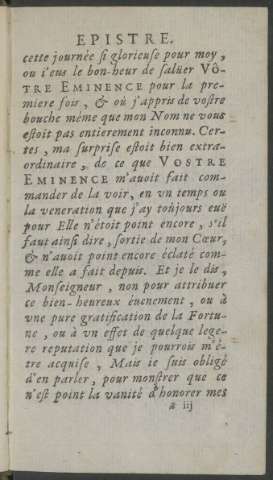 EPISTRE.
cette journée si glorieuse pour moy,
ou i'eus le bon-heur de salüer VÔ-
TRE EMINENCE pour la pre-
miere fois, & où j'appris de vostre
bouche méme que mon Nom ne vous
estoit pas entierement inconnu. Cer-
tes, ma surprise estoit bien extra-
ordinaire, de ce que VOSTRE
EMINENCE m'auoit fait com-
mander de la voir, en vn temps ou
la veneration que j'ay toûjours euë
pour Elle n'étoit point encore, s'il
faut ainsi dire, sortie de mon Cœur,
& n'auoit point encore éclaté com-
me elle a fait depuis. Et je le dis,
Monseigneur, non pour attribuer
ce bien-heureux éuenement, ou à
vne pure gratification de la Fortu-
ne, ou à vn effet de quelque lege-
re reputation que je pourrois m'é-
tre acquise, Mais ie suis obligé
d'en parler, pour monstrer que ce
n'est point la vanité d'honorer mes
a iij